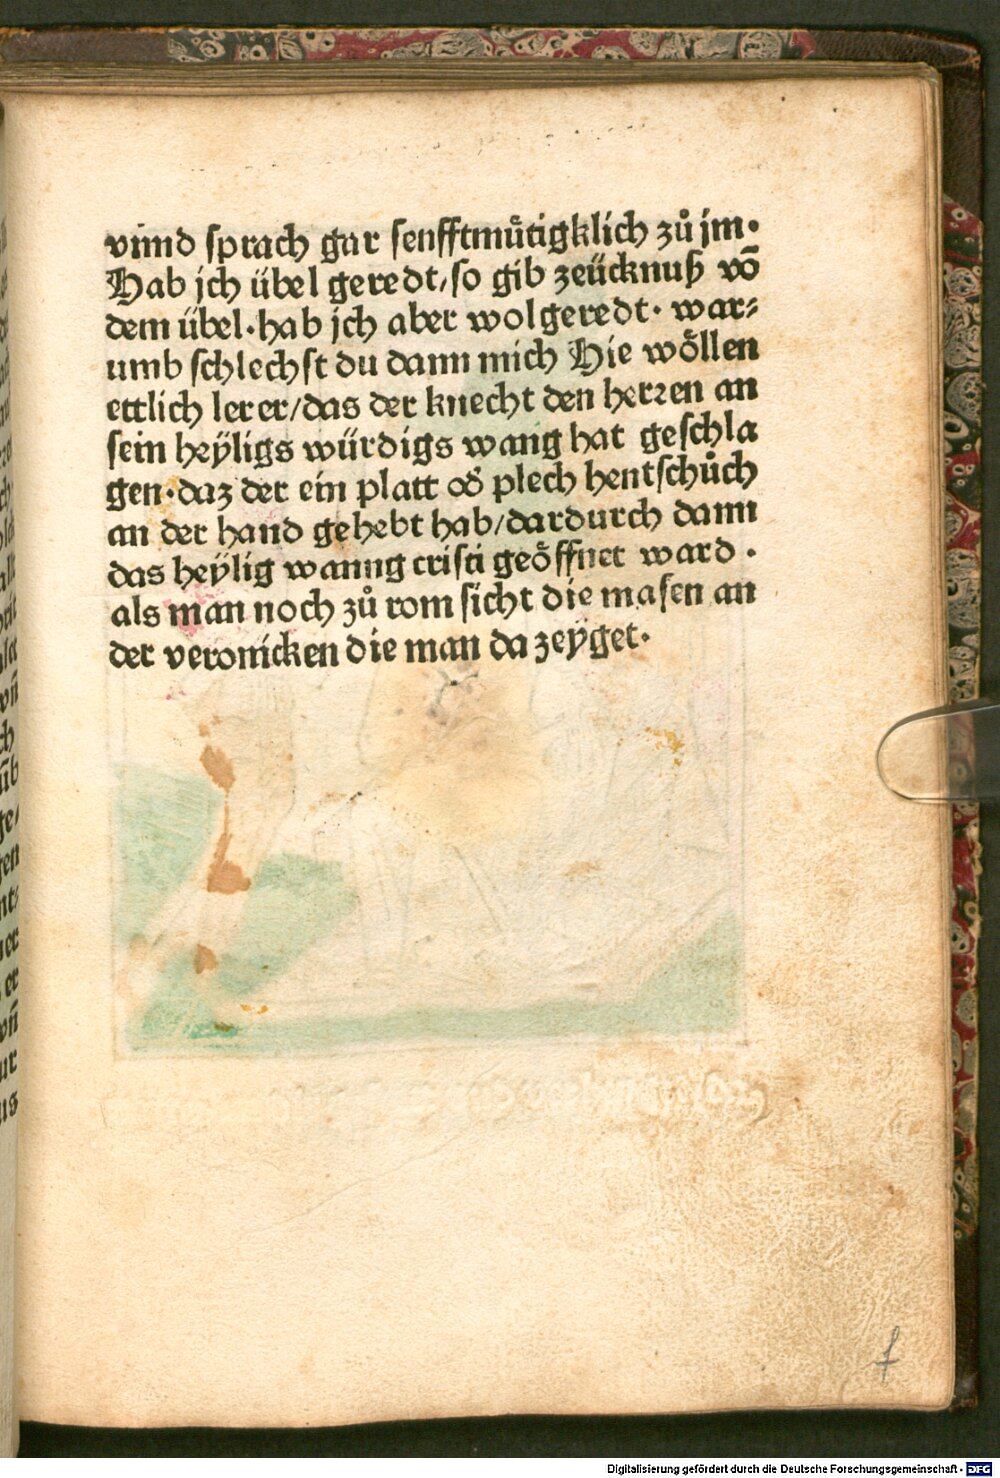 vnnd sprach gar senfftmuͤtigklich zuͦ jm·
Hab jch übel geredt/so gib zeücknuß vō
dem übel·hab jch aber wolgeredt· war⸗
umb schlechst du dann mich Hie woͤllen
ettlich lerer/das der knecht den herꝛen an
sein heÿligs würdigs wang hat geschla
gen·daz der ein platt od̓ plech hentschuͦch
an der hand gehebt hab/dardurch dann
das heÿlig wanng cristi geoͤffnet ward ·
als man noch zuͦ rom sicht die masen an
der veronicken die man da zeÿget·
f
Digitalisierung gefördert durch die Deutsche Forschungsgemeinschaft - DFG